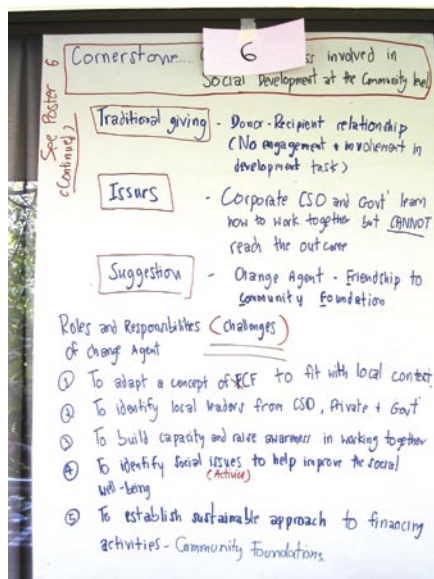 6
See Poster 6
(Continued)
Cornerstone.... ss involved in
Social Development at the Community level
Traditional giving - Donor-Recipient relationship
(No engagement + involvement in
development task)
Issues - Corporate CSO and Govt' learn
how to work together but CANNOT
reach the outcome
Suggestion - Change Agent - Friendship to
Community Foundation
Roles and Responsibilities (challenges)
of change Agent
① To adapt a concept of CF to fit with local context
② To identify local leaders from CSO, Private + Govt'
③ To build capacity and raise awareness in working together
④ To identify social issues to help improve the social
(Activies)
well-being
⑤ To establish sustainable approach to financing
activities - Community Foundations